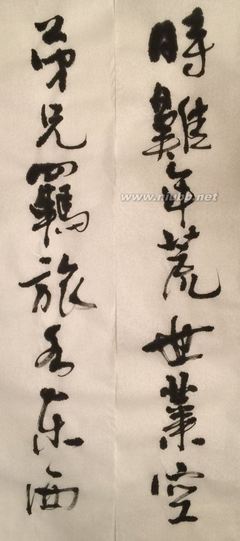 時難年荒世業空
弟兄羈旅各东西
www.niubb.net